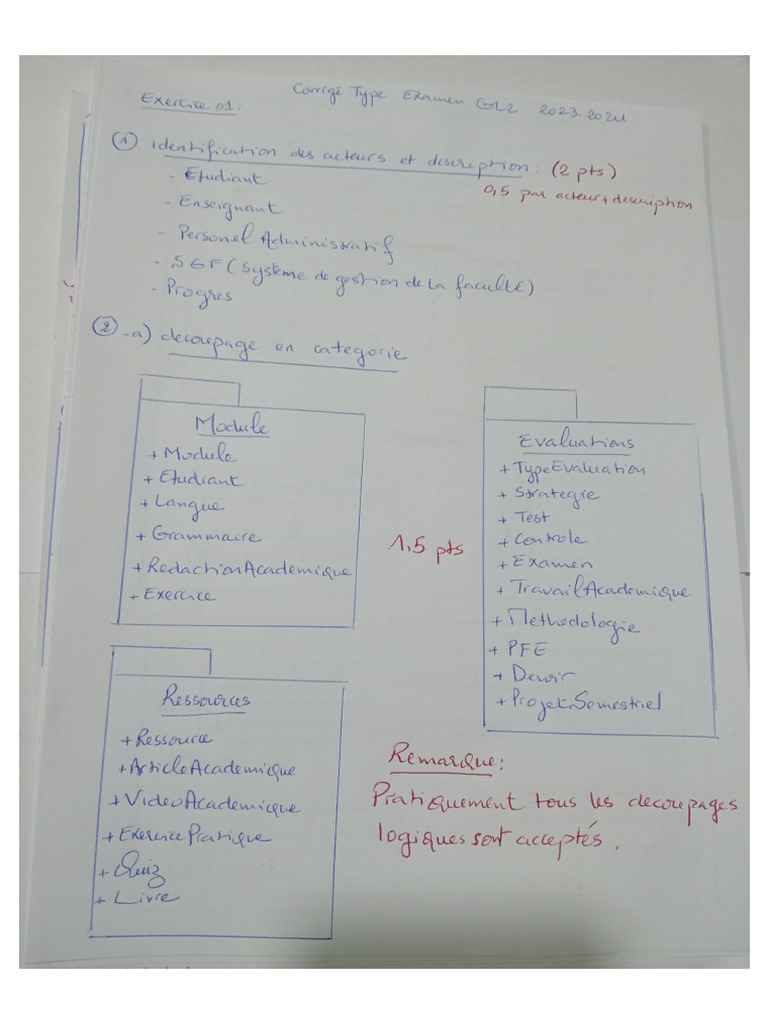 Corrigé Type Examen GL2 2023-2024
Exercice 01:
① Identification des acteurs et description: (2 pts)
0,5 par acteur+description
- Etudiant
- Enseignant
- Personel Administratif
- SGF (Système de gestion de la faculté)
- Progres
② -a) decoupage en categorie
Module
+ Module
+ Etudiant
+ Langue
+ Grammaire
+ RedactionAcademique
+ Exercice
1,5 pts
Evaluations
+ TypeEvaluation
+ Strategie
+ Test
+ Controle
+ Examen
+ TravailAcademique
+ Methodologie
+ PFE
+ Devoir
+ ProjetSemestriel
Ressources
+ Ressource
+ ArticleAcademique
+ VideoAcademique
+ ExercicePratique
+ Quiz
+ Livre
Remarque:
Pratiquement tous les decoupages
logiques sont acceptés.